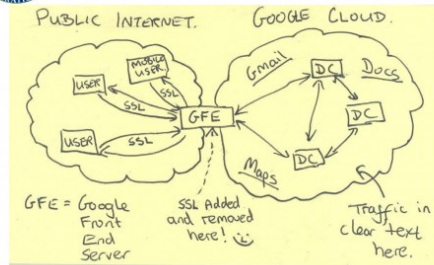 PUBLIC INTERNET.
GOOGLE CLOUD.
MOBILE
USER
USER
SSL
SSL
USER
SSL
GFE
Gmail
DC
Docs
DC
Maps
DC
GFE = Google
Front
End
Server
SSL Added
and removed
here!
Traffic in
clear text
here.